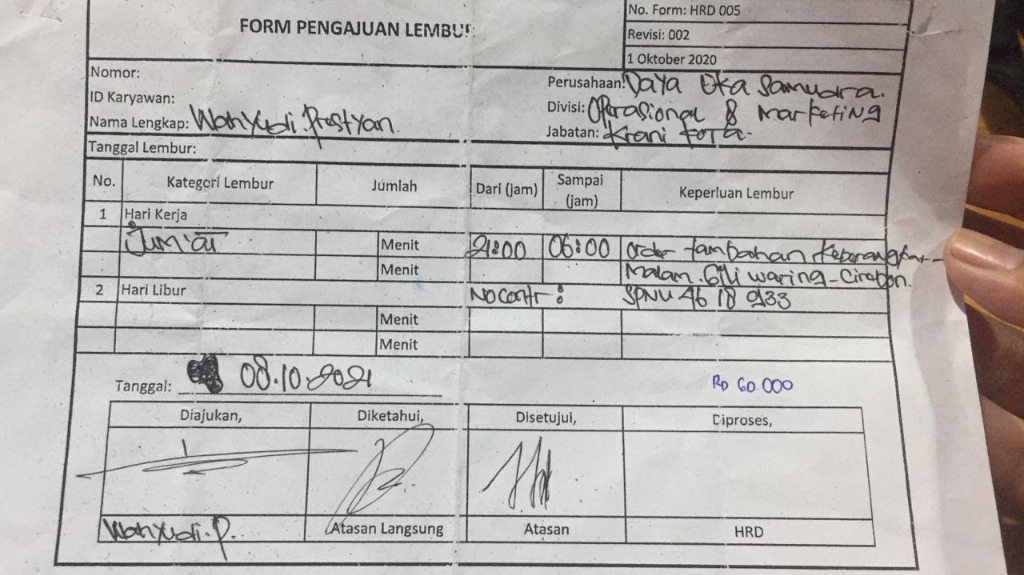 FORM PENGAJUAN LEMBUR
No. Form: HRD 005
Revisi: 002
1 Oktober 2020
Nomor:
ID Karyawan:
Nama Lengkap: Wahyudi. Prastyan.
Perusahaan: Daya Eka Samudra.
Divisi: Operasional & Marketing
Jabatan: Krani
Tanggal Lembur:
No. Kategori Lembur Jumlah Dari (jam) Sampai (jam) Keperluan Lembur
1 Hari Kerja
Jum'at Menit 21:00 06:00 order tambahan keberangkat-
Menit Malam. waring - Cirebon.
2 Hari Libur No contr : SPNU 46 18 933
Menit
Menit
Tanggal: 08.10.2021
Rp 60.000
Diajukan, Diketahui, Disetujui, Diproses,
Wahyudi. P. Atasan Langsung Atasan HRD